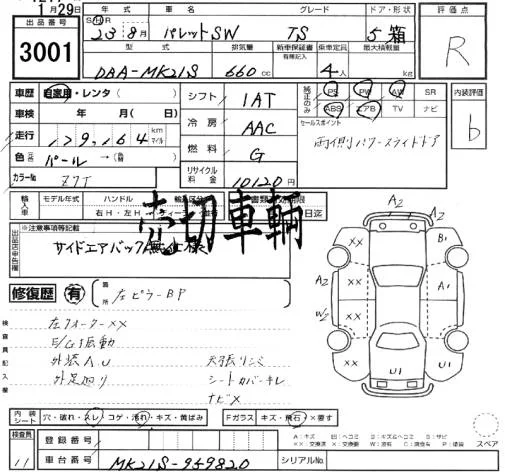 1月29
出品番号
3001
年式 車名 グレード ドア・形状
S/H/R 23 8月 パレットSW TS 5 箱
型式 排気量 新車保証書 有無記入 乗車定員 最大積載量
DBA-MK21S 660cc 4人 kg
評価点
R
車歴 自家用・レンタ( )
車検 年 月( 日)
走行 179,164 km マイル
色 パール →(替)
カラーNo. Z7T
シフト IAT
冷房 AAC
燃料 G
リサイクル料金 10120円
純正のみ PS PW AW SR
ABS エアB TV ナビ
セールスポイント
両側パワースライドドア
内装評価
b
輸入車 モデル年式 ハンドル
右H・左H
売切車輌
※注意事項等記載
サイドエアバック無仕様
修復歴 有 箇所 左ピラーBP
検査員記入欄
左クォーターXX
E/G振動
外装A.U
外足廻り
天張りシミ
シートカバーキレ
ナビX
A2
A2
XX
B1
A2
XX
A1
W2
XX
U1
U1
内装シート 穴・破れ・スレ・コゲ・汚れ・キズ・黄ばみ
Fガラス キズ・飛石・X要す
スペア
検査員 11
登録番号
車台番号 MK21S-959820
シリアルNo.